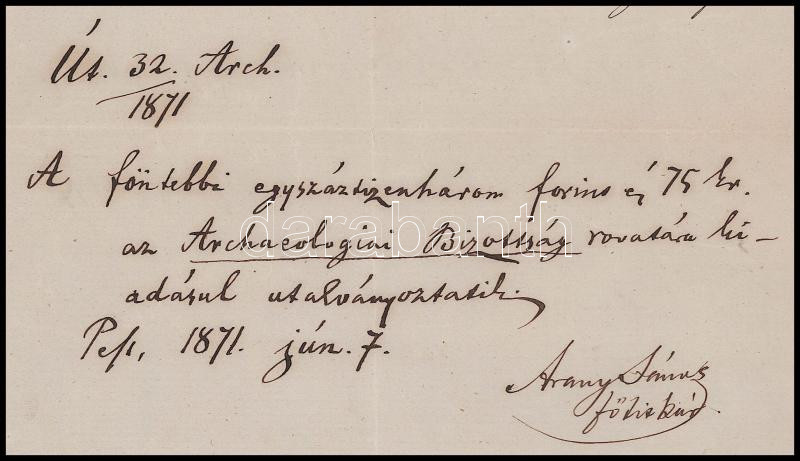 Út. 32. Arch.
1871
A föntebbi egyszáztizenhárom forint és 75 kr.
az Archaeologiai Bizottság rovatára ki-
adásul utalványoztatik.
Pest, 1871. jún. 7.
Arany János
főtitkár.
darabanth